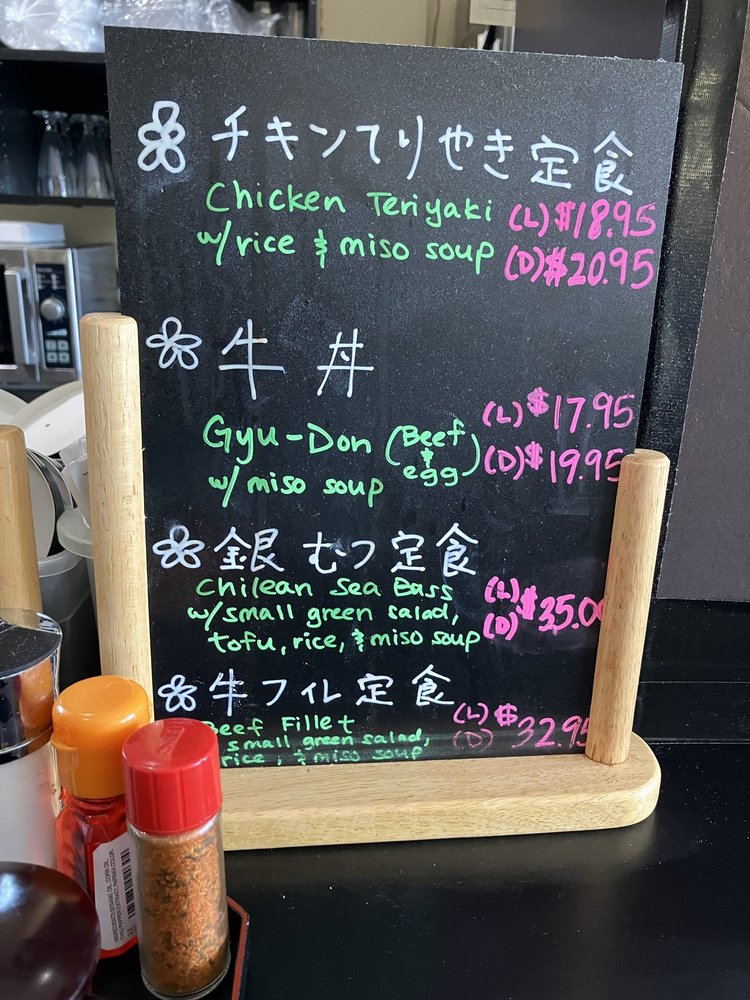 チキンてりやき定食
Chicken Teriyaki (L) $18.95
w/rice & miso soup (D) $20.95
牛丼
(L) $17.95
Gyu-Don (Beef & egg) (D) $19.95
w/ miso soup
銀むつ定食
Chilean Sea Bass (L)
w/small green salad, (D) $35.00
tofu, rice, & miso soup
牛フィレ定食
Beef Fillet (L) $
small green salad, (D) 32.95
rice, & miso soup
INGREDIENTS: SESAME OIL, CORN OIL,
CHILI PEPPER EXTRACT, PAPRIKA COLOR